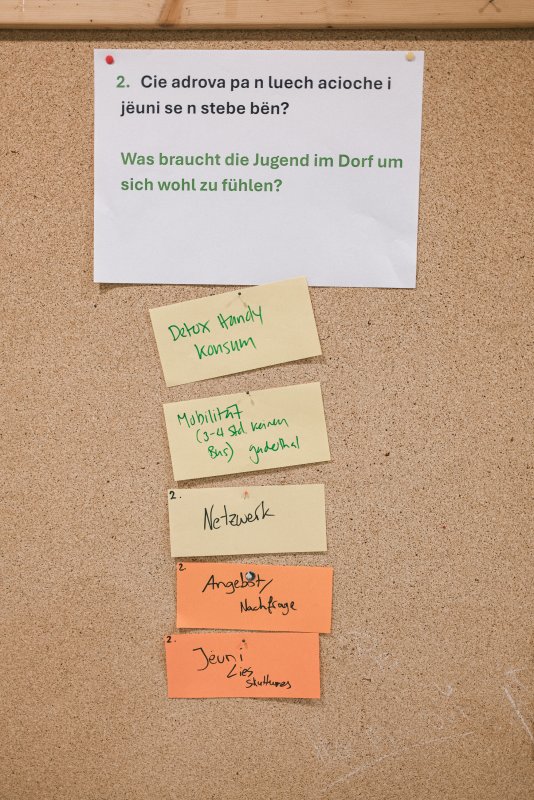 2. Cie adrova pa n luech acioche i
jëuni se n stebe bën?
Was braucht die Jugend im Dorf um
sich wohl zu fühlen?
Detox Handy
Konsum
Mobilität
(3-4 Std. keinen
Bus)
2.
Netzwerk
2.
Angebot/
Nachfrage
2.
Jëuni
Lies